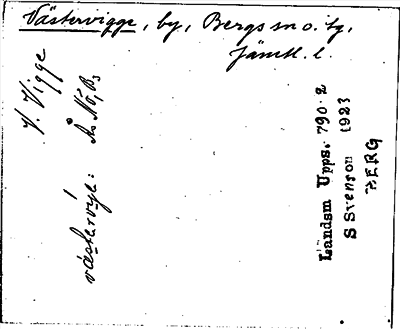 Västervigge, by, Bergs sn o. tg,
Jämtl. l.
V. Vigge
västervije:
Landsm Upps. 790:2
S Svenson 1923
BERG